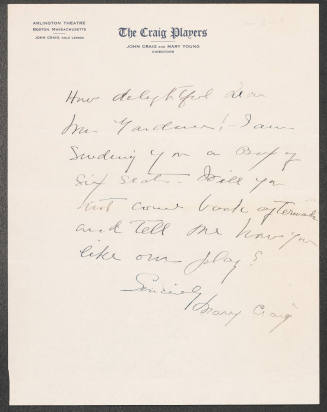 ARLINGTON THEATRE
BOSTON, MASSACHUSETTS
JOHN CRAIG, SOLE LESSEE
The Craig Players
JOHN CRAIG AND MARY YOUNG
DIRECTORS
How delightful dear
Mrs. Gardner! I am
sending you a Box of
six seats. Will you
not come back afterwards
and tell me how you
like our play?
Sincerely
Mary Craig